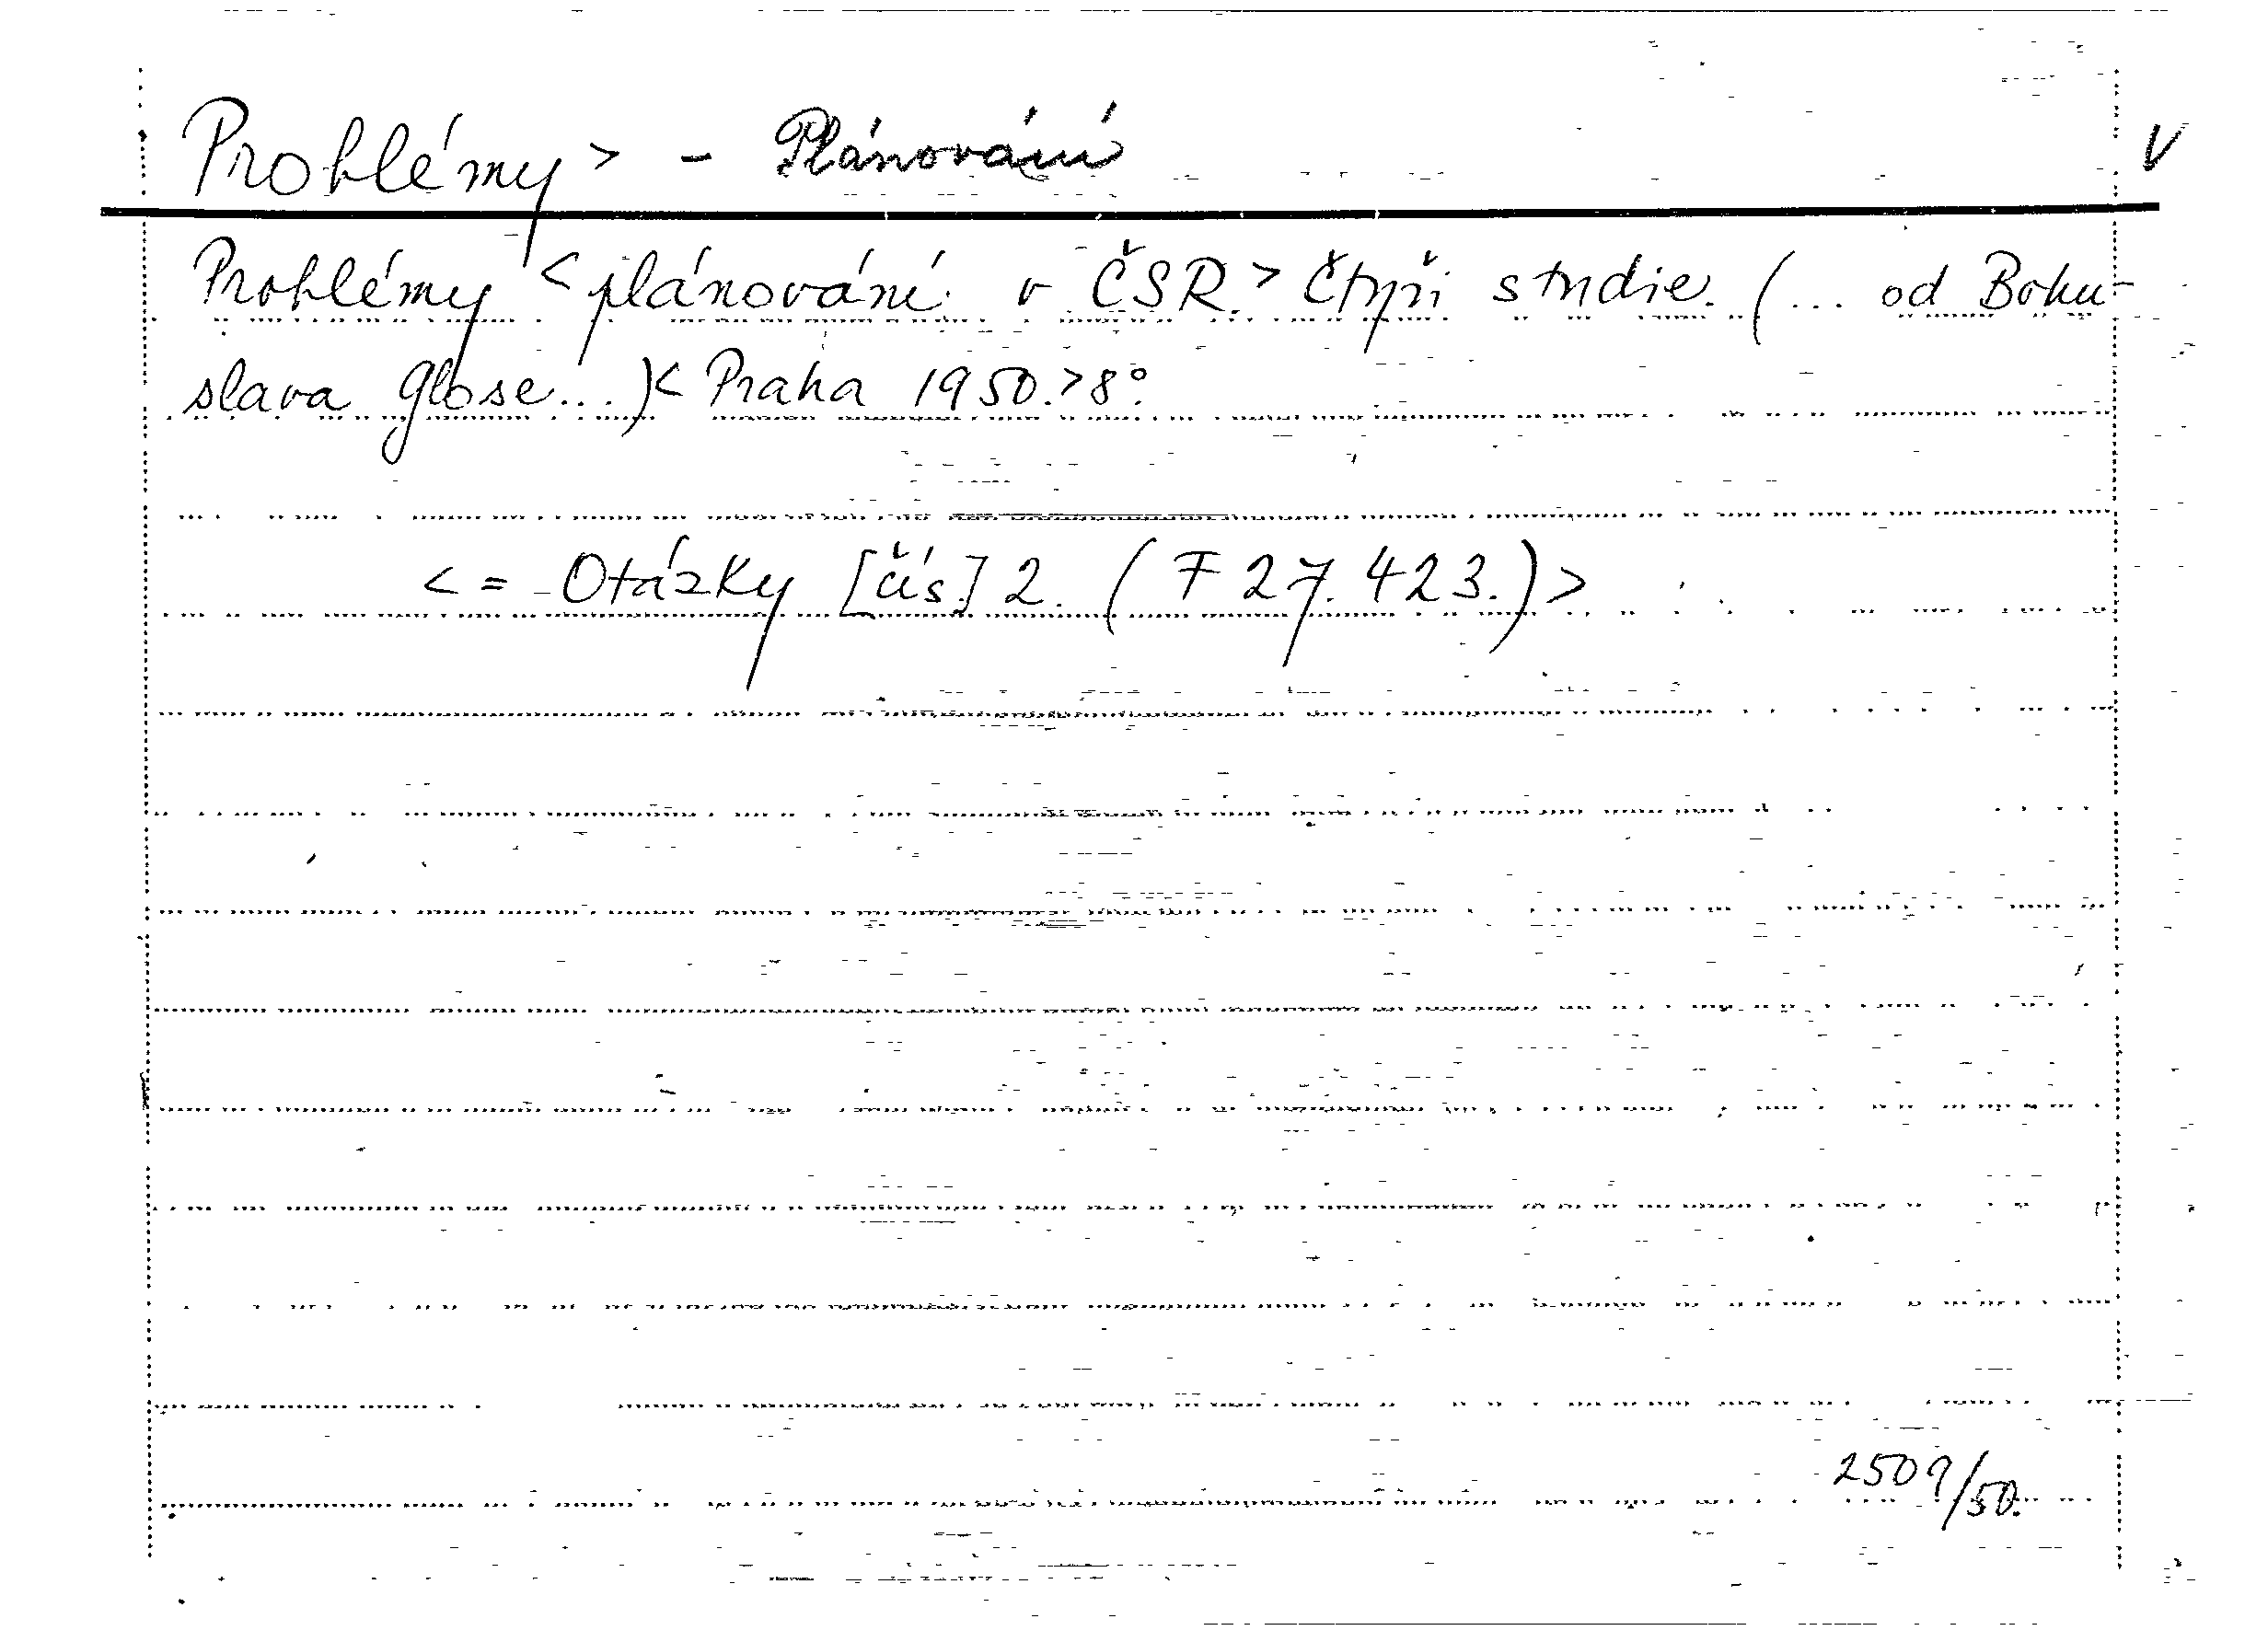 Problémy > - Plánování V
Problémy < plánování v ČSR. > Čtyři studie. (... od Bohu-
slava Glose...) < Praha 1950. > 8°.
< = Otázky [čís.] 2. (F 27.423.) >
2509/50.